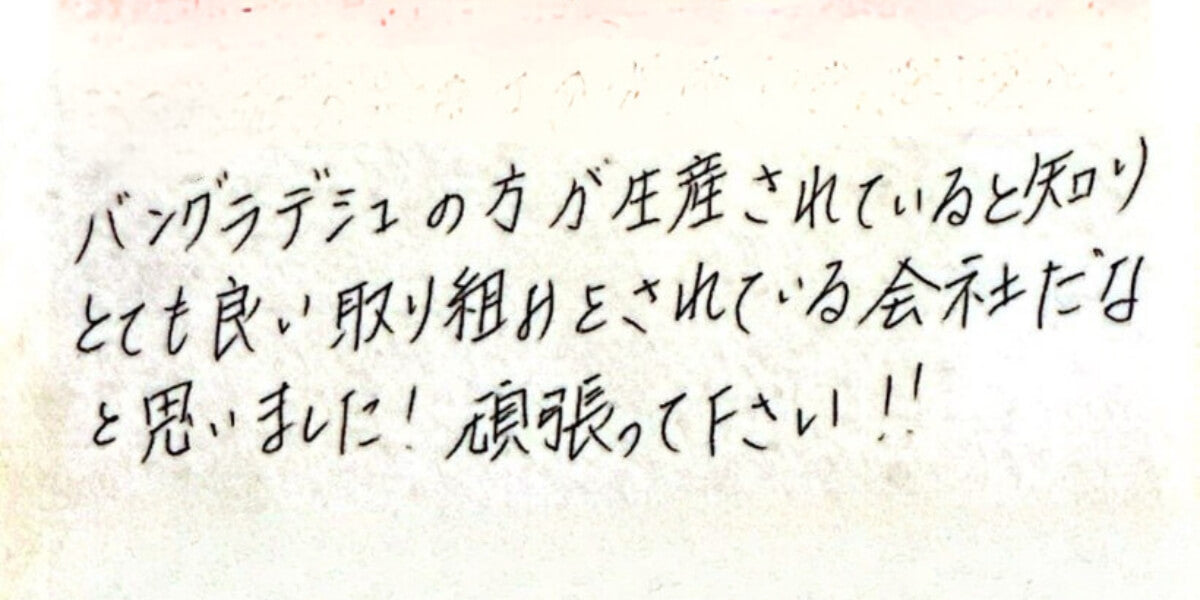 バングラデシュの方が生産されていると知り
とても良い取り組みをされている会社だな
と思いました! 頑張って下さい!!